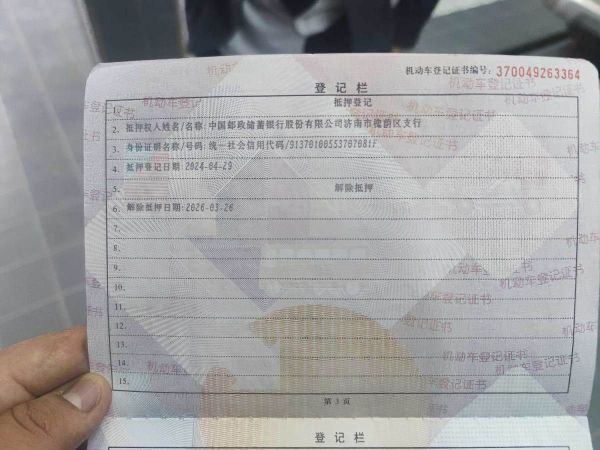 机动车登记证书编号: 370049263364
登记栏
1. 抵押登记
2. 抵押权人姓名/名称:中国邮政储蓄银行股份有限公司济南市槐荫区支行
3. 身份证明名称/号码:统一社会信用代码/91370100553707081F
4. 抵押登记日期:2024-04-29
5. 解除抵押
6. 解除抵押日期:2026-03-26
7.
8.
9.
10.
11.
12.
13.
14.
15.
第 3 页
登记栏
机动车登记证书
机动车登记证书
机动车登记证书
机动车登记证书